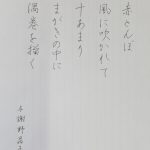 赤とんぼ
風に吹かれて
十あまり
まがきの中に
渦巻を描く
与謝野晶子